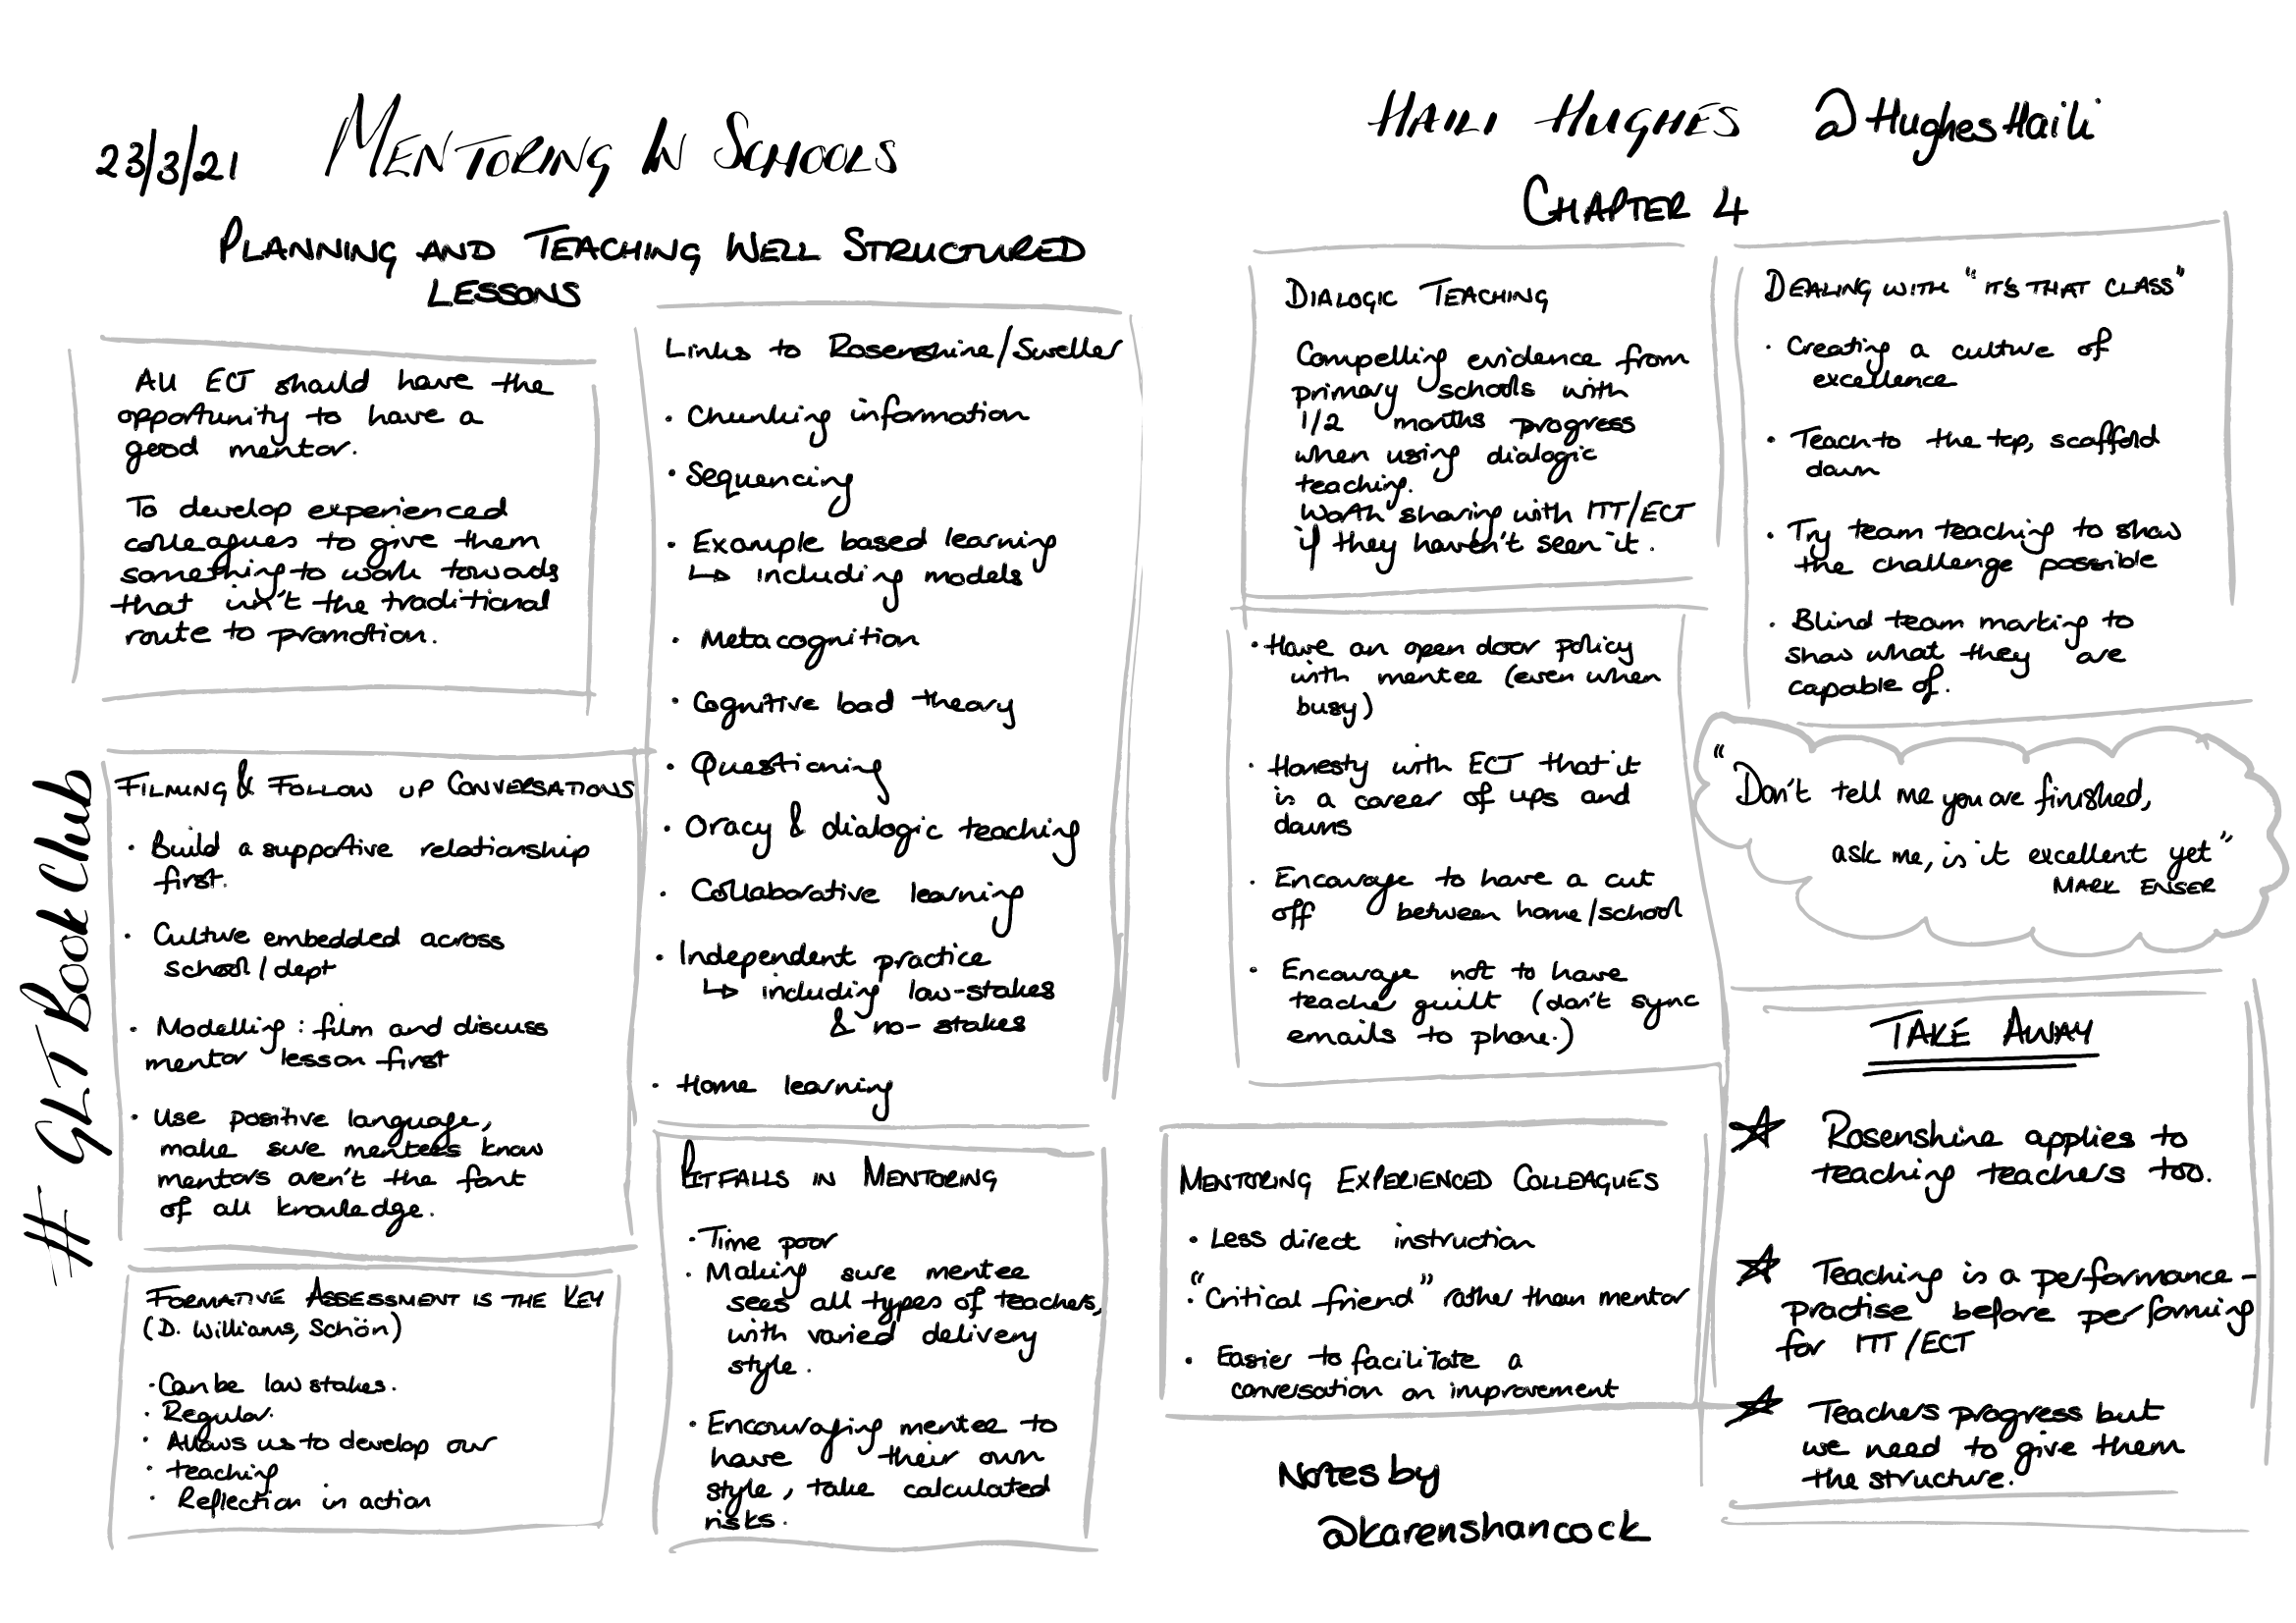 23/3/21 MENTORING IN SCHOOLS
HAILI HUGHES @HughesHaili
CHAPTER 4
PLANNING AND TEACHING WELL STRUCTURED
LESSONS
All ECT should have the
opportunity to have a
good mentor.
To develop experienced
colleagues to give them
something to work towards
that isn't the traditional
route to promotion.
# GLT Book Club
FILMING & FOLLOW UP CONVERSATIONS
· Build a supportive relationship
first.
· Culture embedded across
school/dept
· Modelling: film and discuss
mentor lesson first
· Use positive language,
make sure mentees know
mentors aren't the font
of all knowledge.
FORMATIVE ASSESSMENT IS THE KEY
(D. Williams, Schön)
· Can be low stakes.
· Regular.
· Allows us to develop our
· teaching
· Reflection in action
Links to Rosenshine/Sweller
· Chunking information
· Sequencing
· Example based learning
↳ including models
· Metacognition
· Cognitive load theory
· Questioning
· Oracy & dialogic teaching
· Collaborative learning
· Independent practice
↳ including low-stakes
& no-stakes
· Home learning
PITFALLS IN MENTORING
· Time poor
· Making sure mentee
sees all types of teachers,
with varied delivery
style.
· Encouraging mentee to
have their own
style, take calculated
risks.
DIALOGIC TEACHING
Compelling evidence from
primary schools with
1/2 months progress
when using dialogic
teaching.
Worth sharing with ITT/ECT
if they haven't seen it.
· Have an open door policy
with mentee (even when
busy)
· Honesty with ECT that it
is a career of ups and
downs
· Encourage to have a cut
off between home/school
· Encourage not to have
teacher guilt (don't sync
emails to phone.)
MENTORING EXPERIENCED COLLEAGUES
· Less direct instruction
· "Critical friend" rather than mentor
· Easier to facilitate a
conversation on improvement
Notes by
@karenshancock
DEALING WITH "IT'S THAT CLASS"
· Creating a culture of
excellence
· Teach to the top, scaffold
down
· Try team teaching to show
the challenge possible
· Blind team marking to
show what they are
capable of.
"Don't tell me you are finished,
ask me, is it excellent yet"
MARK ENSER
TAKE AWAY
☆ Rosenshine applies to
teaching teachers too.
☆ Teaching is a performance -
practise before performing
for ITT/ECT
☆ Teachers progress but
we need to give them
the structure.